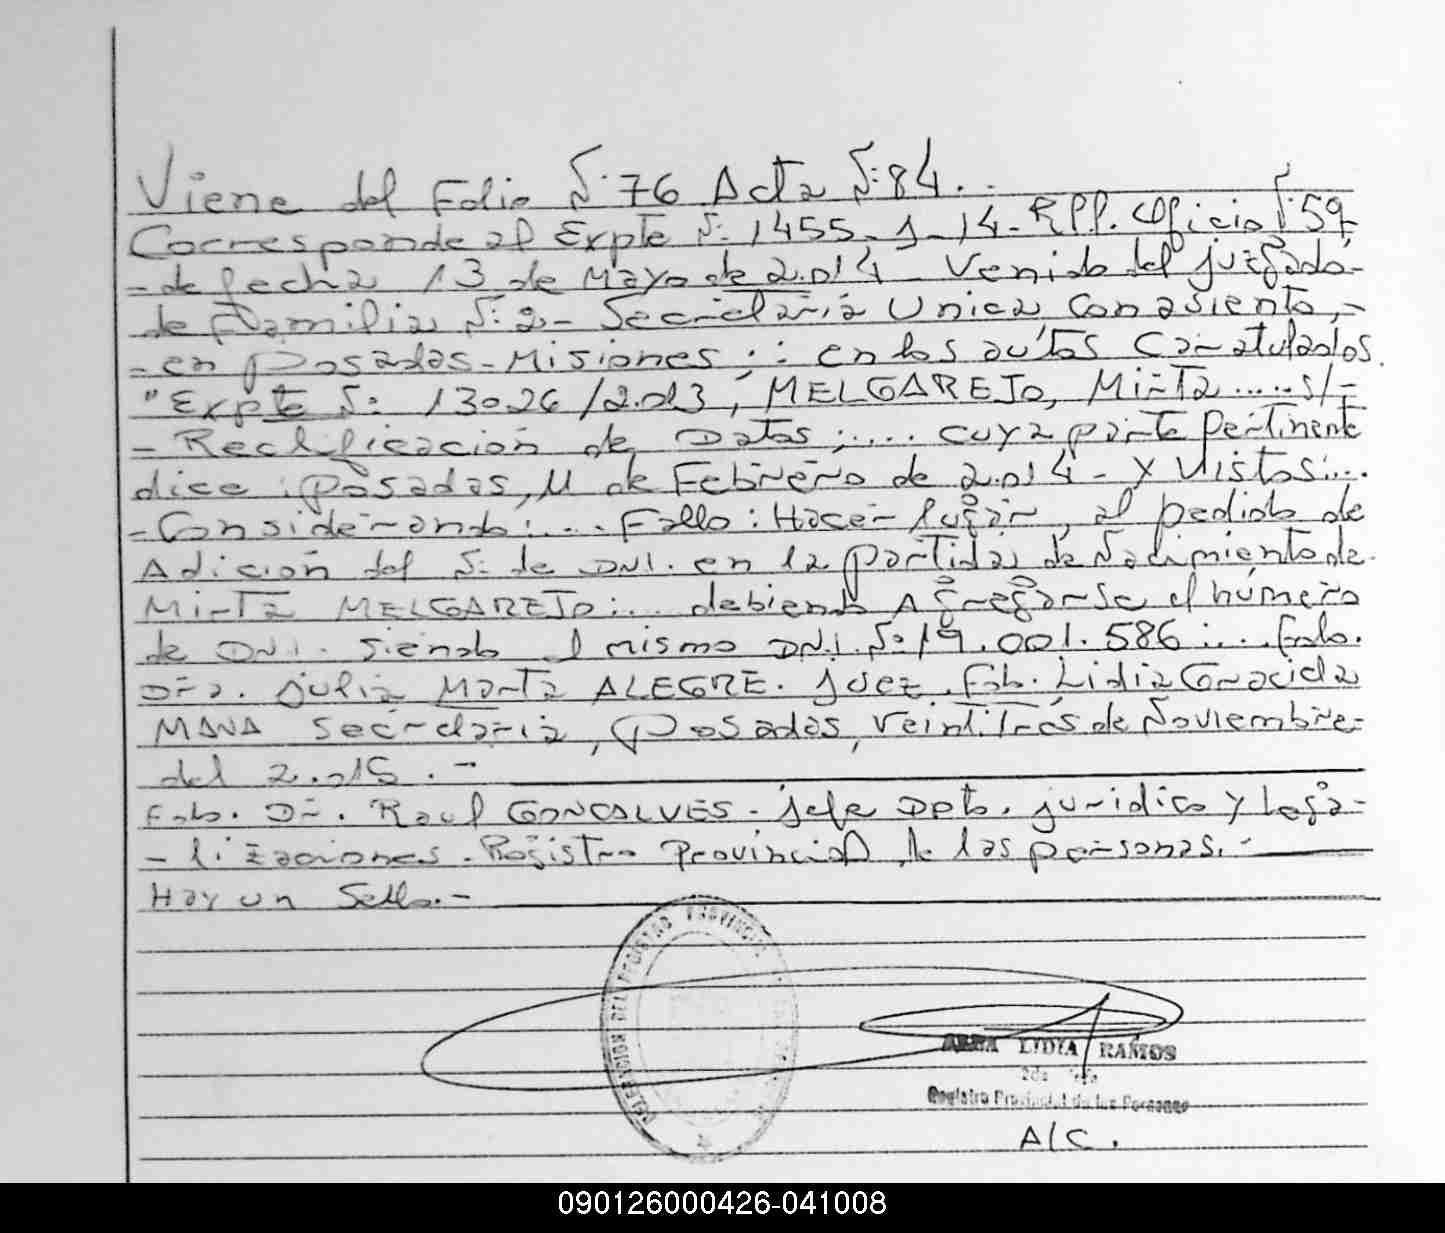 Viene del Folio N: 76 Acta N: 84.
Corresponde al Expte N: 1455-J-14-RPP. Oficio N: 59-
-de fecha 13 de Mayo de 2.014 Venido del juzgado-
de Familia N: 2- Secretaria Unica con asiento,-
-en Posadas-Misiones;: en los autos Caratulados
"Expte N: 13026/2.013, MELGAREJO, Mirta ..... s/-
-Rectificación de Datos;.... cuya parte pertinente
dice: Posadas, 11 de Febrero de 2.014- Y Vistos:...
-Considerando:... Fallo: Hacer lugar, al pedido de
Adición del N: de DNI. en la partida de Nacimiento de
Mirta MELGAREJO:... debiendo Agregarse el número
de DNI. siendo el mismo DNI. N: 19.001.586:... Fdo.
Dra. Julia Marta ALEGRE. Juez. Fdo. Lidia Graciela
MANA Secretaria, Posadas, Veintitrés de Noviembre-
del 2.015.-
Fdo. Dr. Raul GONCALVES- Jefe Dpto. juridico y Lega-
-lizaciones. Registro Provincial de las personas.-
Hay un Sello.-
DELEGACION DEL REGISTRO PROVINCIAL
LIDIA RAMOS
Registro Provincial de las Personas
A/C.
090126000426-041008